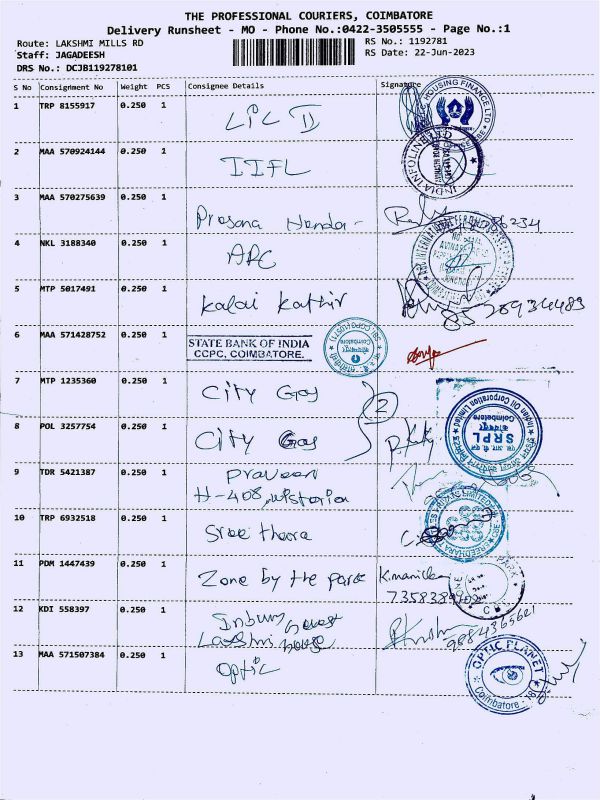 THE PROFESSIONAL COURIERS, COIMBATORE
Delivery Runsheet - MO - Phone No.:0422-3505555 - Page No.:1
Route: LAKSHMI MILLS RD
RS No.: 1192781
Staff: JAGADEESH
RS Date: 22-Jun-2023
DRS No.: DCJB119278101
S No Consignment No Weight PCS Consignee Details Signature
1 TRP 8155917 0.250 1 LIC II
HOUSING FINANCE LTD
2 MAA 570924144 0.250 1 IIFL
INDIA INFOLINE
3 MAA 570275639 0.250 1 Prasana Honda
4 NKL 3188340 0.250 1 APC
5 MTP 5017491 0.250 1 Kalai Kathir
8528934489
6 MAA 571428752 0.250 1 STATE BANK OF INDIA
CCPC, COIMBATORE.
7 MTP 1235360 0.250 1 City Gas
2
8 POL 3257754 0.250 1 City Gas
Indian Oil Corporation Limited
SRPL
Coimbatore
9 TDR 5421387 0.250 1 Praveen
H-408,
10 TRP 6932518 0.250 1 Sree
11 PDM 1447439 0.250 1 Zone by the Park K.manick
7358389908
12 KDI 558397 0.250 1
Lakshmi house
9884365621
13 MAA 571507384 0.250 1 Optic
OPTIC PLANET
Coimbatore - 18